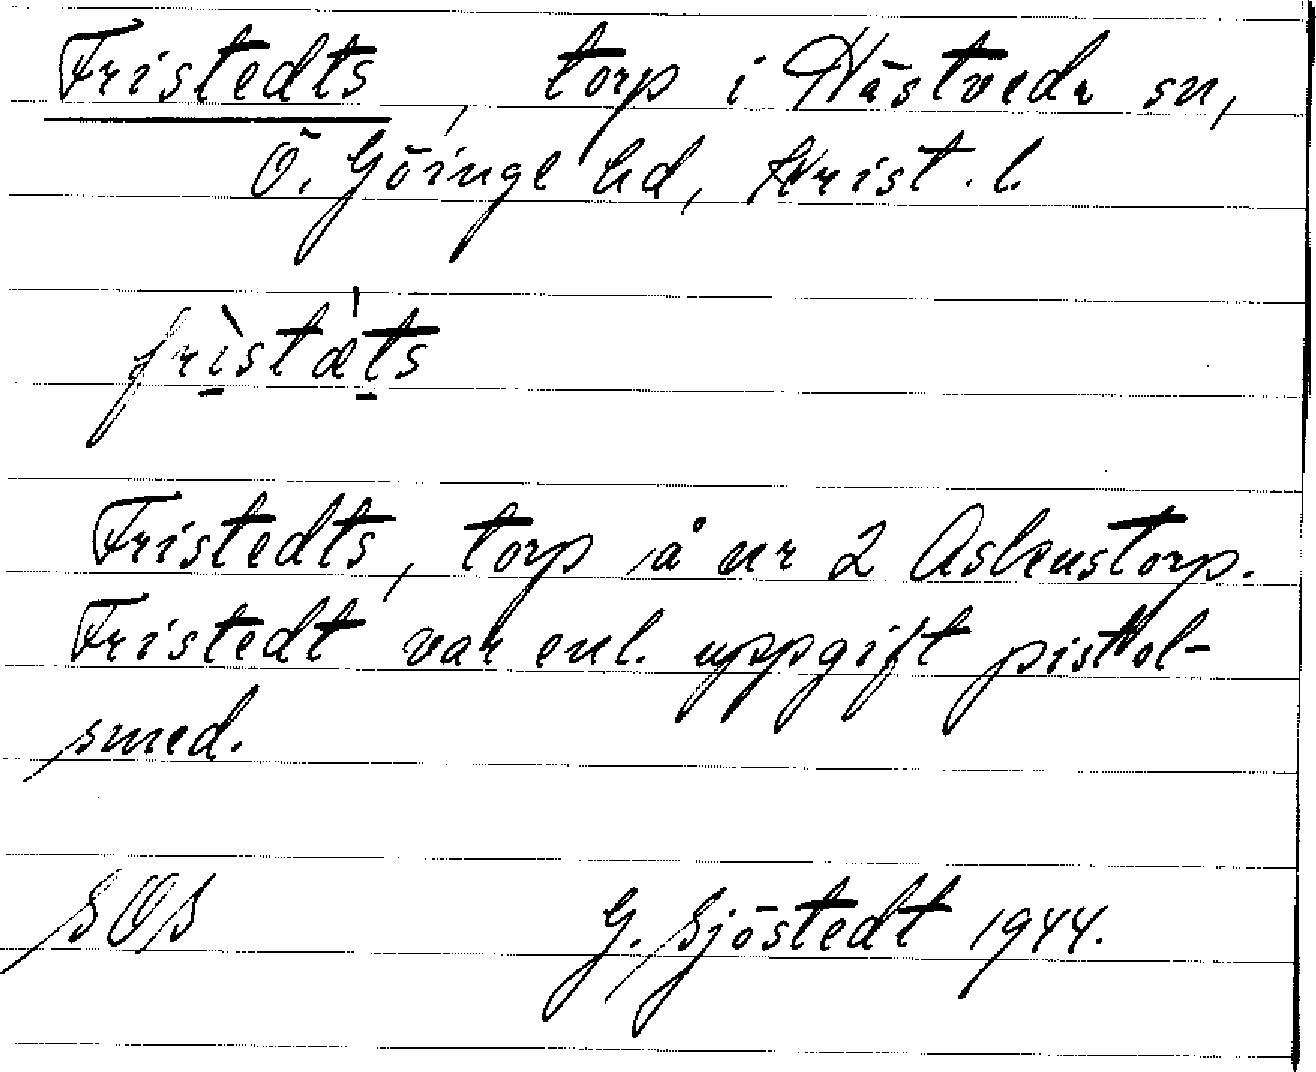 Fristedts, torp i Hästveda sn,
Ö. Göinge hd, Krist. l.
frìstæ̍ts
Fristedts, torp å nr 2 Askenstorp.
Fristedt var enl. uppgift pistol-
smed.
SOS G. Sjöstedt 1944.